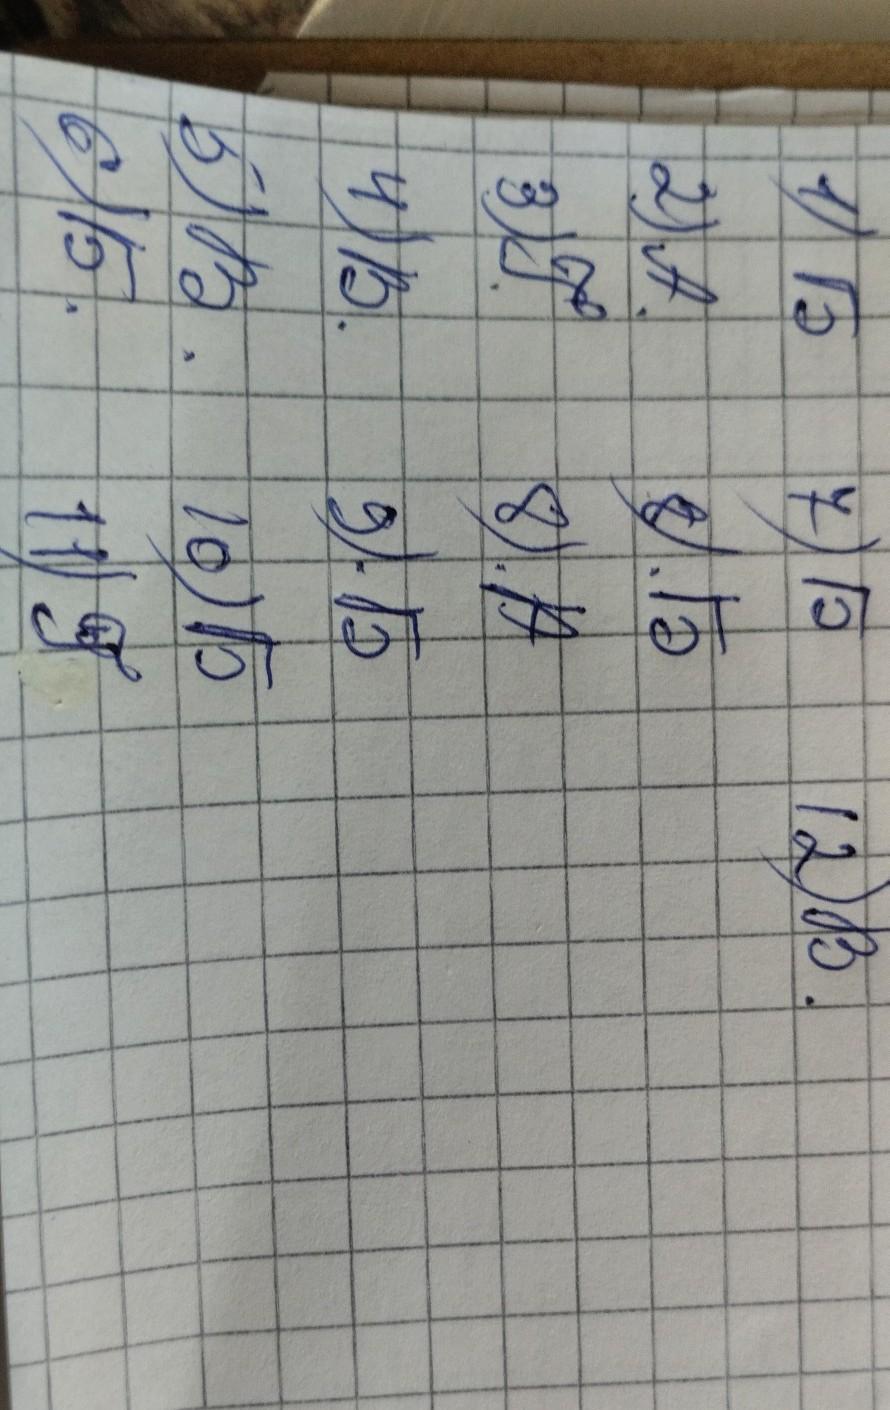 1) Б
2) А.
3) Д.
4) В.
5) В.
6) Б.
7) Б
8). Б
8). А
9). Б
10) Б
11) Д
12) В.